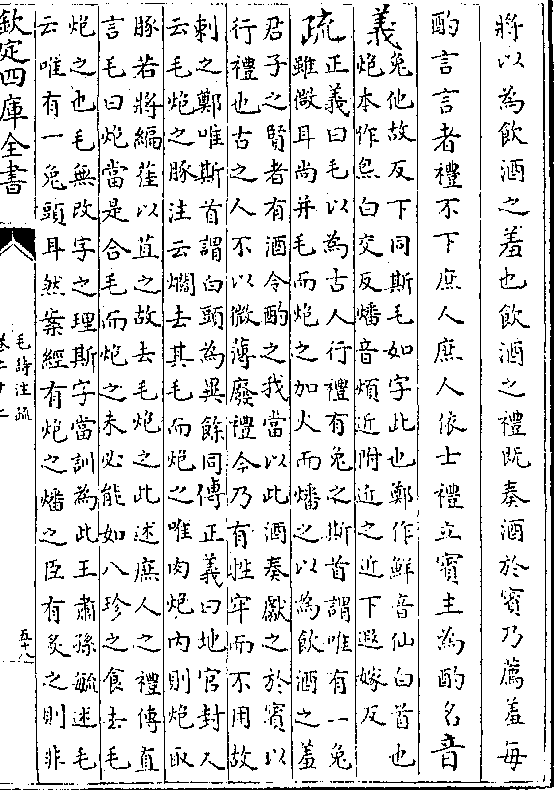 將以為飲酒之羞也飲酒之禮既奏酒於賓乃薦羞每
酌言言者禮不下庶人庶人依士禮立賓主為酌名音
義
兔他故反下同斯毛如字此也鄭作鮮音仙白首也
炮本作炰白交反燔音煩近附近之近下遐嫁反
疏
正義曰毛以為古人行禮有兔之斯首謂唯有一兔
雖微耳尚并毛而炮之加火而燔之以為飲酒之羞
君子之賢者有酒令酌之我當以此酒奏獻之於賓以
行禮也古之人不以微薄廢禮今乃有牲牢而不用故
刺之鄭唯斯首謂白頭為異餘同傳正義曰地官封人
云毛炮之豚注云爓去其毛而炮之唯肉炮內則炮取
豚若將編萑以苴之故去毛炮之此述庶人之禮傳直
言毛曰炮當是合毛而炮之未必能如八珍之食去毛
炮之也毛無改字之理斯字當訓為此王肅孫毓述毛
云唯有一兔頭耳然案經有炮之燔之臣有炙之則非
欽定四庫全書
毛詩注疏
卷二十二
五十八